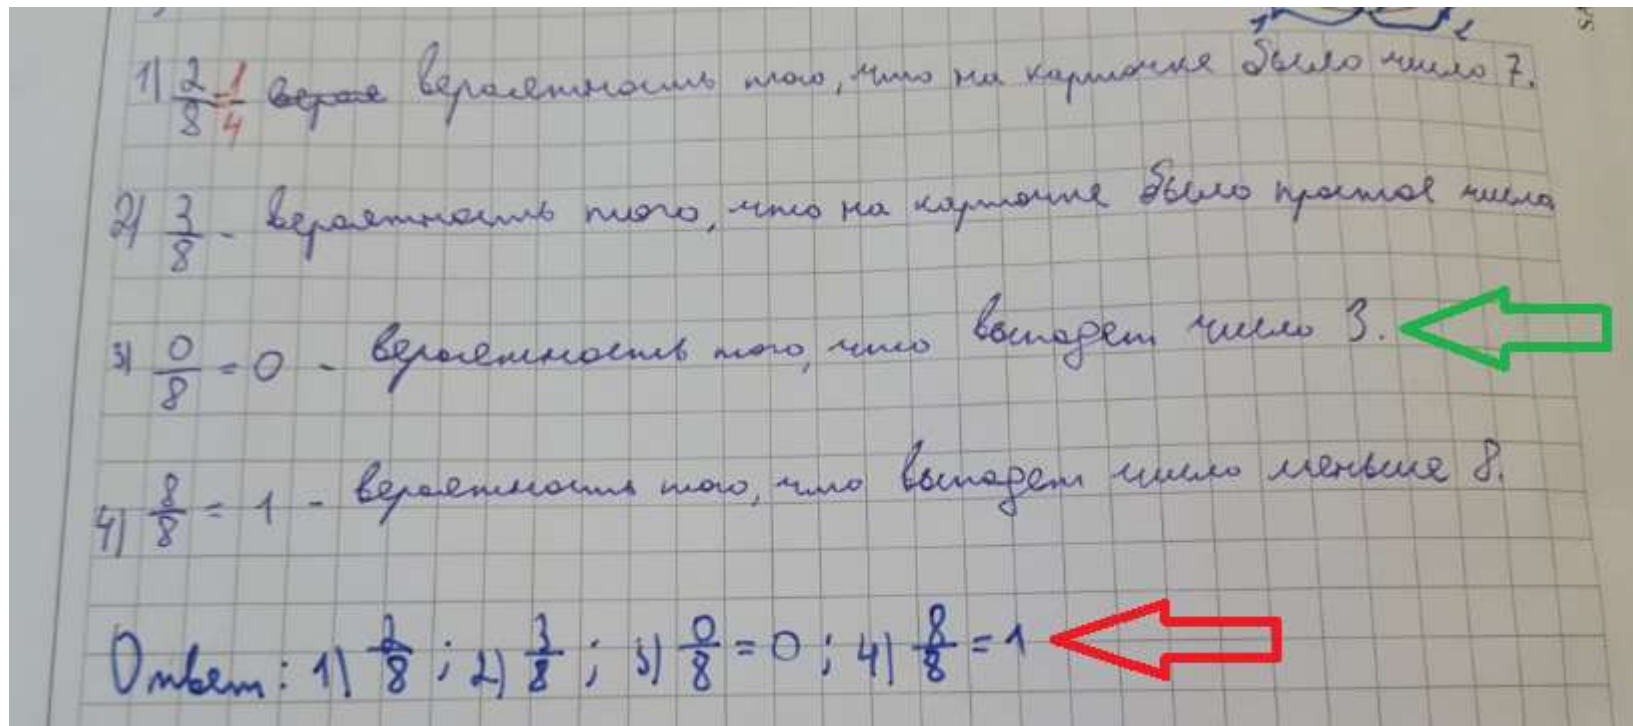 1) 2/8 = 1/4 вероятность того, что на карточке было число 7.
2) 3/8 - вероятность того, что на карточке было простое число
3) 0/8 = 0 - вероятность того, что выпадет число 3.
4) 8/8 = 1 - вероятность того, что выпадет число меньше 8.
Ответ: 1) 2/8; 2) 3/8; 3) 0/8 = 0; 4) 8/8 = 1